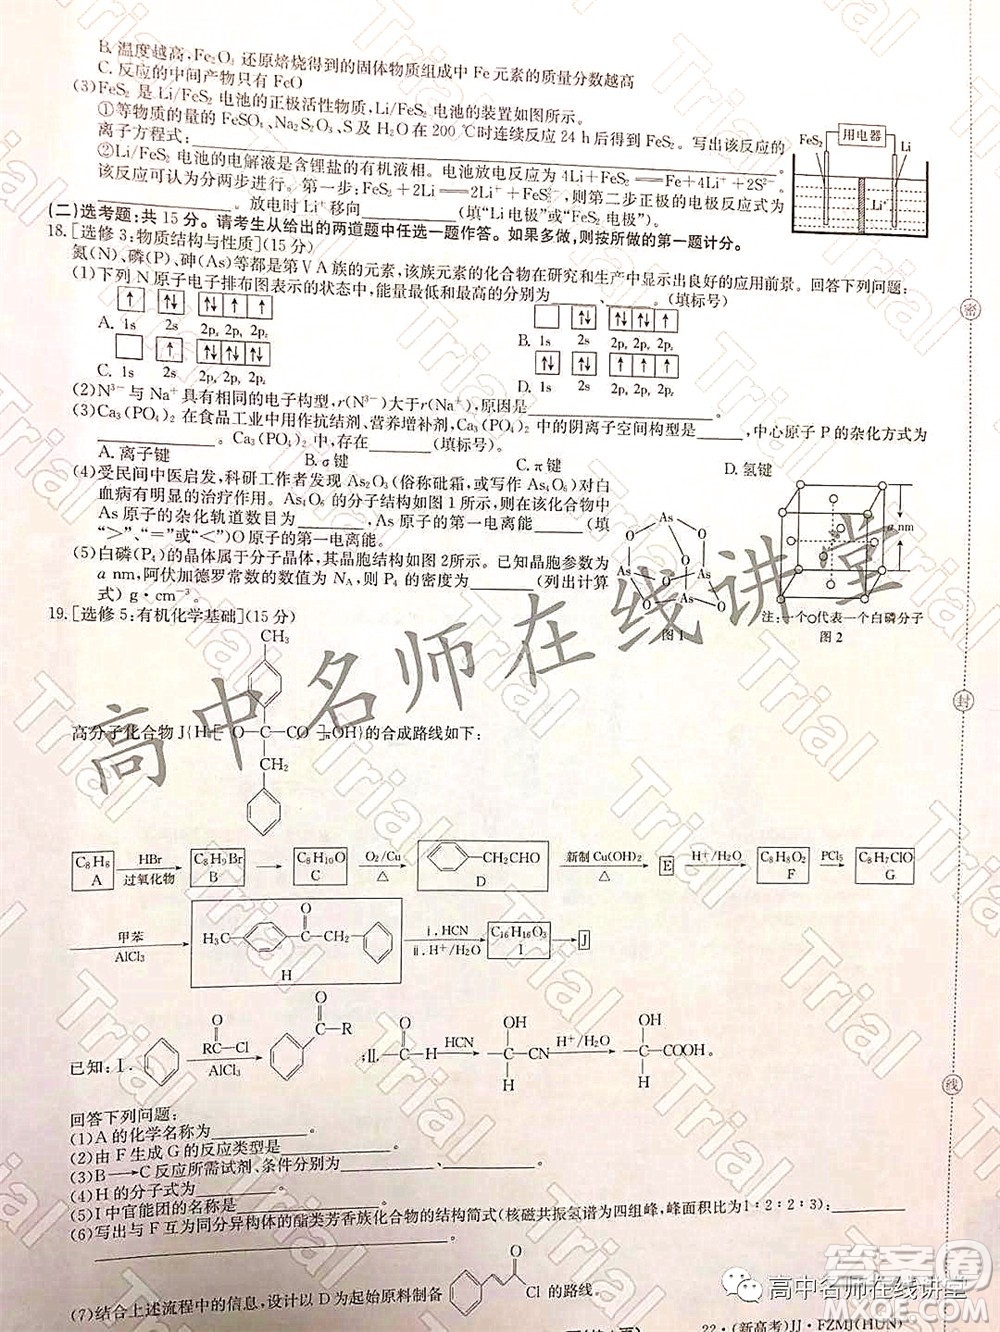 B. 温度越高, Fe₂O₃ 还原焙烧得到的固体物质组成中 Fe 元素的质量分数越高
C. 反应的中间产物只有 FeO
(3)FeS₂ 是 Li/FeS₂ 电池的正极活性物质, Li/FeS₂ 电池的装置如图所示。
①等物质的量的 FeSO₄、Na₂S₂O₃、S 及 H₂O 在 200 ℃时连续反应 24 h 后得到 FeS₂。写出该反应的
离子方程式:
②Li/FeS₂ 电池的电解液是含锂盐的有机液相。电池放电反应为 4Li+FeS₂═Fe+4Li⁺+2S²⁻,
该反应可认为分两步进行。第一步:FeS₂+2Li═2Li⁺+FeS₂²⁻,则第二步正极的电极反应为
。放电时 Li⁺移向 (填“Li 电极”或“FeS₂ 电极”)。
FeS₂ 用电器 Li
Li⁺
(二)选考题:共 15 分。请考生从给出的两道题中任选一题作答。如果多做,则按所做的第一题计分。
18.[选修 3:物质结构与性质](15 分)
氮(N)、磷(P)、砷(As)等都是第ⅤA 族的元素,该族元素的化合物在研究和生产中显示出良好的应用前景。回答下列问题:
(1)下列 N 原子电子排布图表示的状态中,能量最低和最高的分别为 、 。(填标号)
A. 1s 2s 2pₓ 2pᵧ 2p_z
B. 1s 2s 2pₓ 2pᵧ 2p_z
C. 1s 2s 2pₓ 2pᵧ 2p_z
D. 1s 2s 2pₓ 2pᵧ 2p_z
(2)N³⁻与 Na⁺具有相同的电子构型,r(N³⁻)大于 r(Na⁺),原因是 。
(3)Ca₃(PO₄)₂ 在食品工业中用作抗结剂、营养增补剂,Ca₃(PO₄)₂ 中的阴离子空间构型是 ,中心原子 P 的杂化方式为
。Ca₃(PO₄)₂ 中含有 (填标号)。
A. 离子键 B. σ键 C. π键 D. 氢键
(4)受民间中医启发,科研工作者发现 As₂O₃(俗称砒霜,或写作 As₄O₆)对白
血病有明显的治疗作用。As₄O₆ 的分子结构如图 1 所示,则在该化合物中
As 原子的杂化轨道数目为 ,As 原子的第一电离能 (填
“>”、“=”或“<”)O 原子的第一电离能。
(5)白磷(P₄)的晶体属于分子晶体,其晶胞结构如图 2所示。已知晶胞参数为
a nm,阿伏加德罗常数的数值为 Nₐ,则 P₄ 的密度为 (列出计算
式)g·cm⁻³。
As O O O As As O O O As
图 1
a nm
注:一个○代表一个白磷分子
图 2
19.[选修 5:有机化学基础](15 分)
CH₃
高分子化合物 J(H[O—C—CO]ₙOH)的合成路线如下:
CH₂
C₈H₈ A HBr 过氧化物 C₈H₉Br B C₈H₁₀O C O₂/Cu △ CH₂CHO D 新制 Cu(OH)₂ △ E H⁺/H₂O C₈H₈O₂ F PCl₅ C₈H₇ClO G
甲苯 AlCl₃ H₃C O CH₂ H ⅰ.HCN ⅱ.H⁺/H₂O C₁₆H₁₆O₃ I J
已知:Ⅰ. O RC—Cl AlCl₃ O C—R ;Ⅱ. O H HCN OH CN H H⁺/H₂O OH COOH H 。
回答下列问题:
(1)A 的化学名称为 。
(2)由 F 生成 G 的反应类型是 。
(3)B→C 反应所需试剂、条件分别为 、 。
(4)H 的分子式为 。
(5)I 中官能团的名称是 。
(6)写出与 F 互为同分异构体的酯类芳香族化合物的结构简式(核磁共振氢谱为四组峰,峰面积比为 1:2:2:3):
。
(7)结合上述流程中的信息,设计以 D 为起始原料制备 O Cl 的路线。
22·(新高考)JJ·FZMJ(HUN)
密
封
线
高中名师在线讲堂
高中名师在线讲堂
答案圈
MXQE.COM
Trial